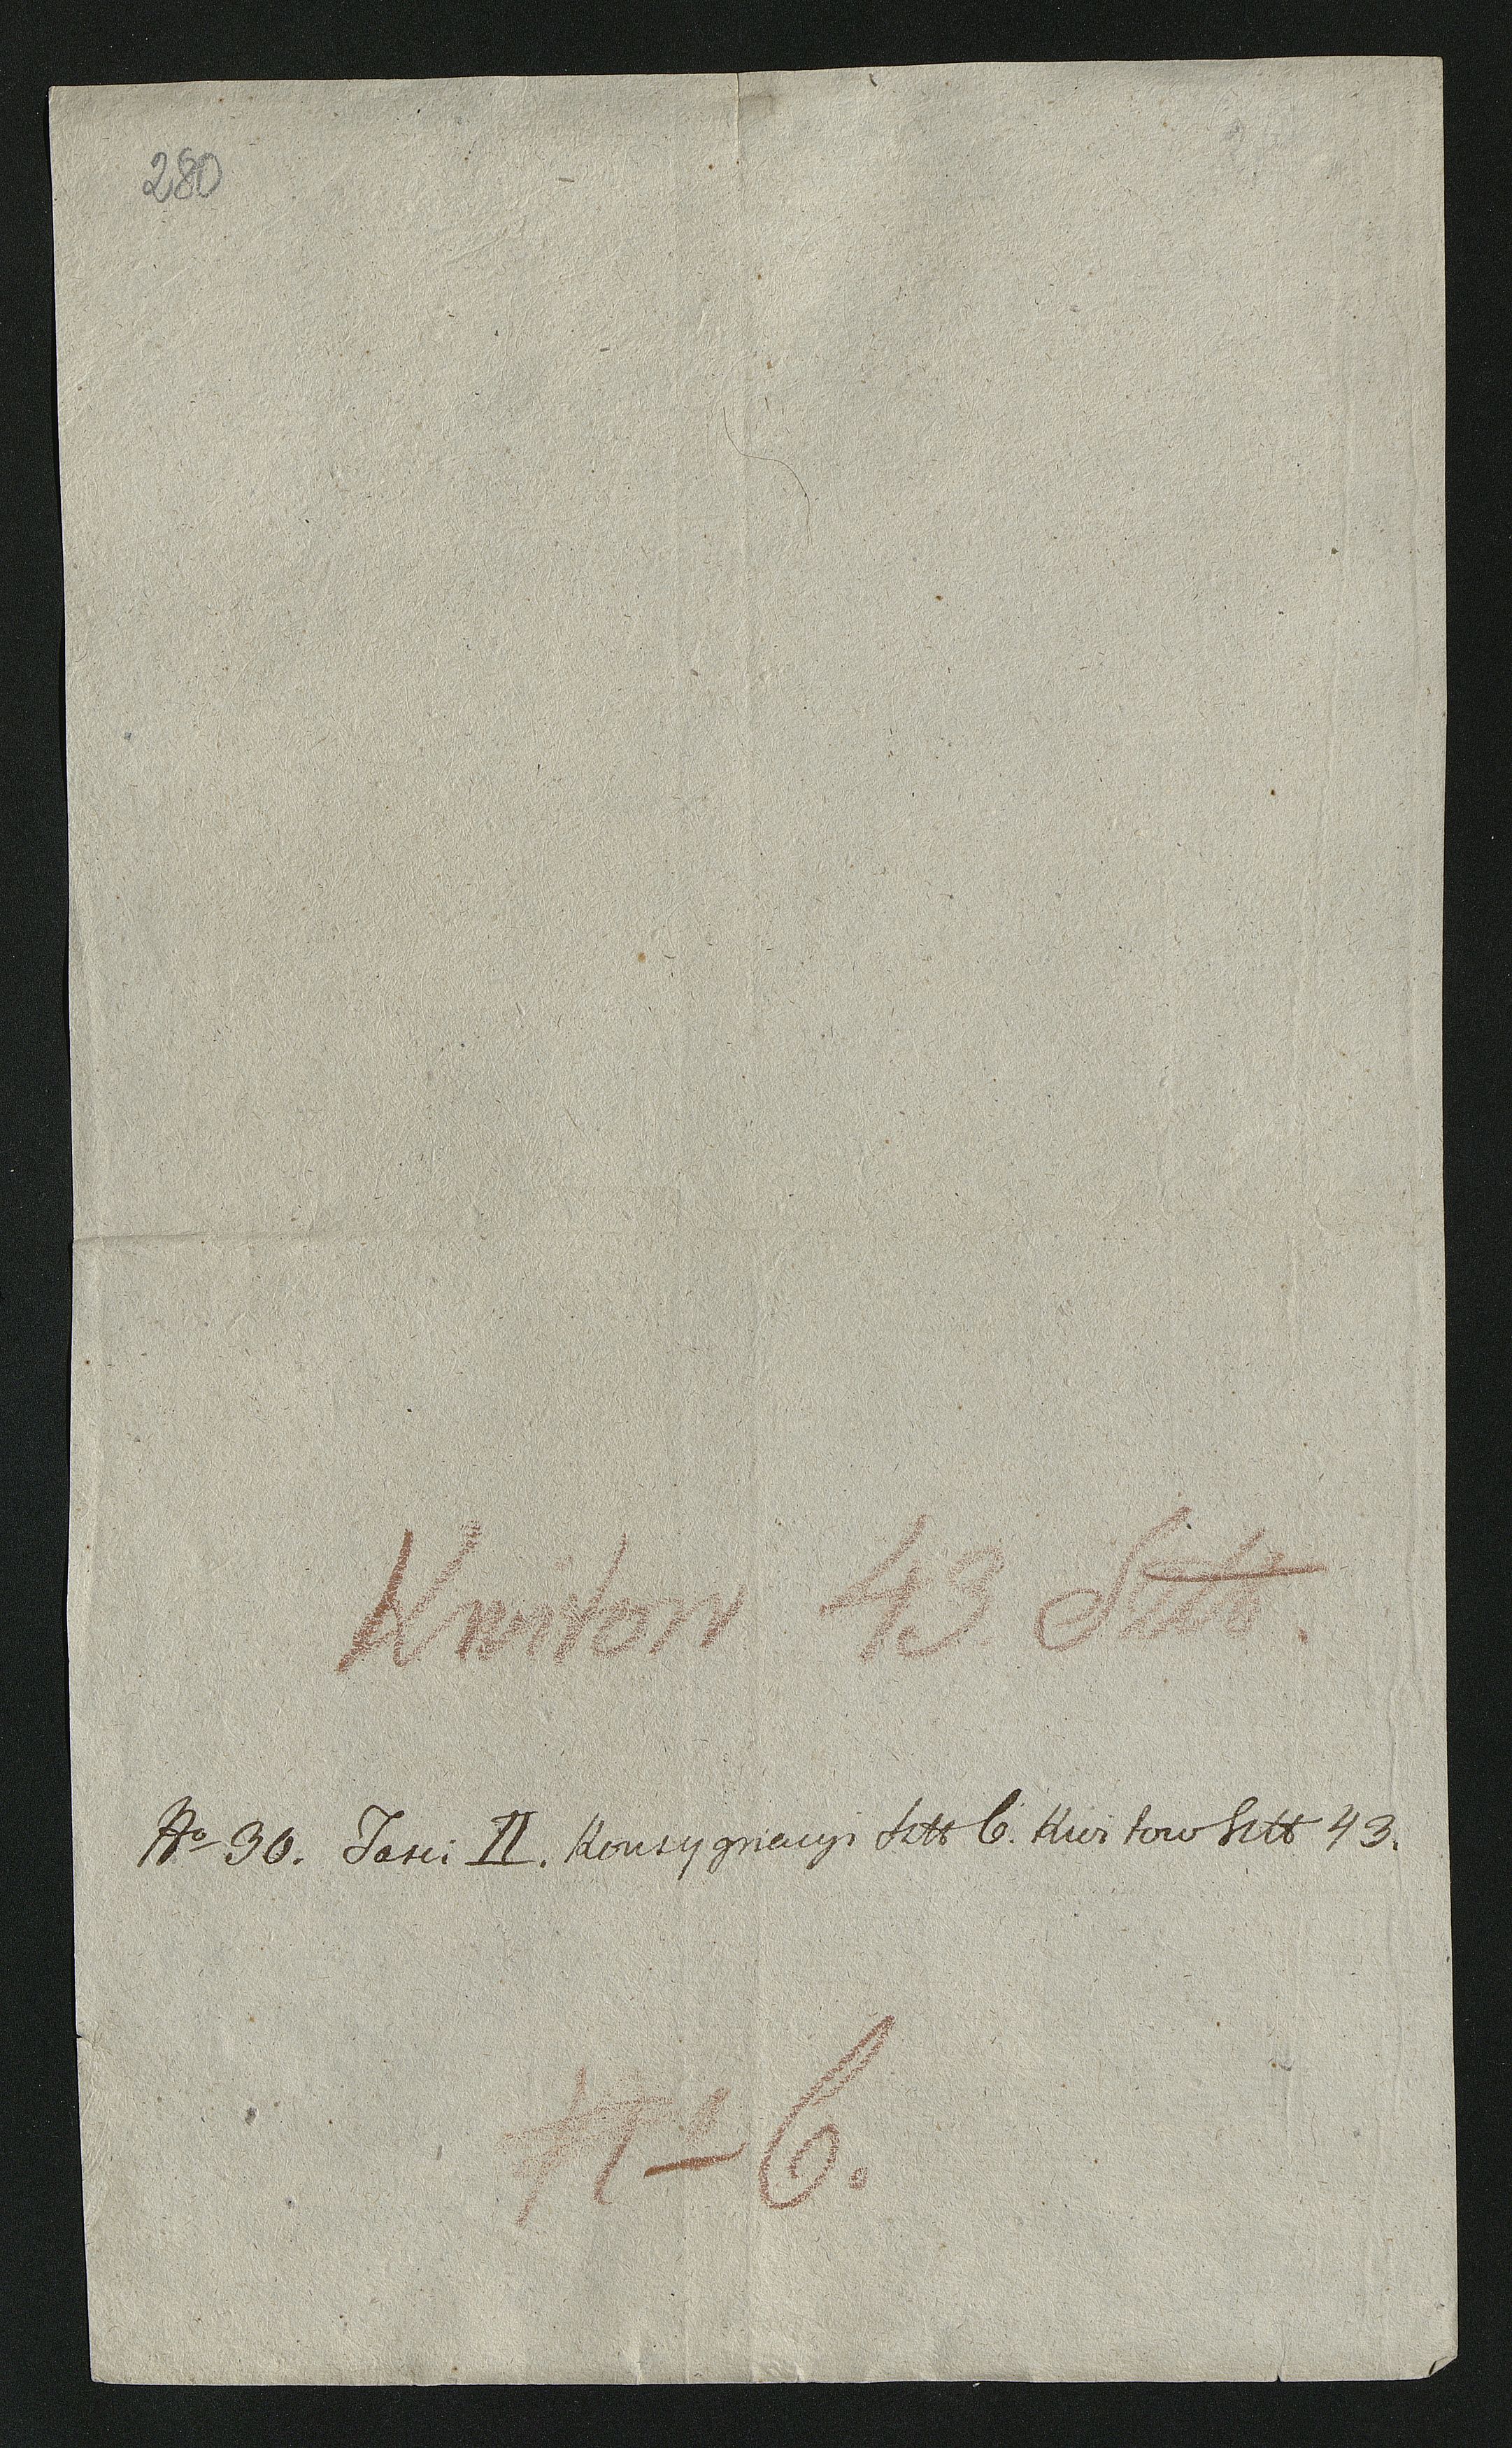 280
Kwitow 43 Sztt.
No 30. Fasci II. Konsygnacyi Sztt 6. Kwitow Sztt 43.
No 6.